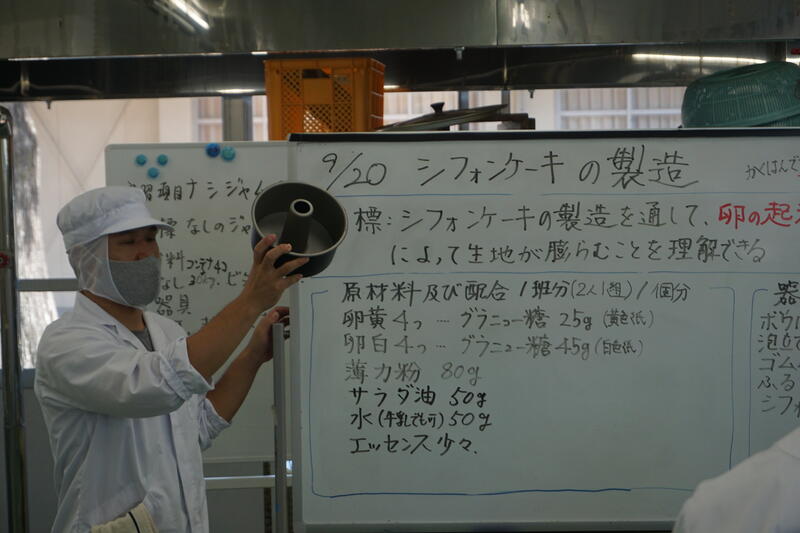 9/20 シフォンケーキの製造
標:シフォンケーキの製造を通して、卵の起
によって生地が膨らむことを理解できる
原材料及び配合 1班分(2人1組)1個分
卵黄4つ…グラニュー糖25g(黄色紙)
卵白4つ…グラニュー糖45g(白色紙)
薄力粉 80g
サラダ油 50g
水(牛乳でも可)50g
エッセンス少々.
かくはんで
器
ボウル
泡立て
ゴム
ふる
シフォ
習項目ナシジャム
標 なしのジャ
器具